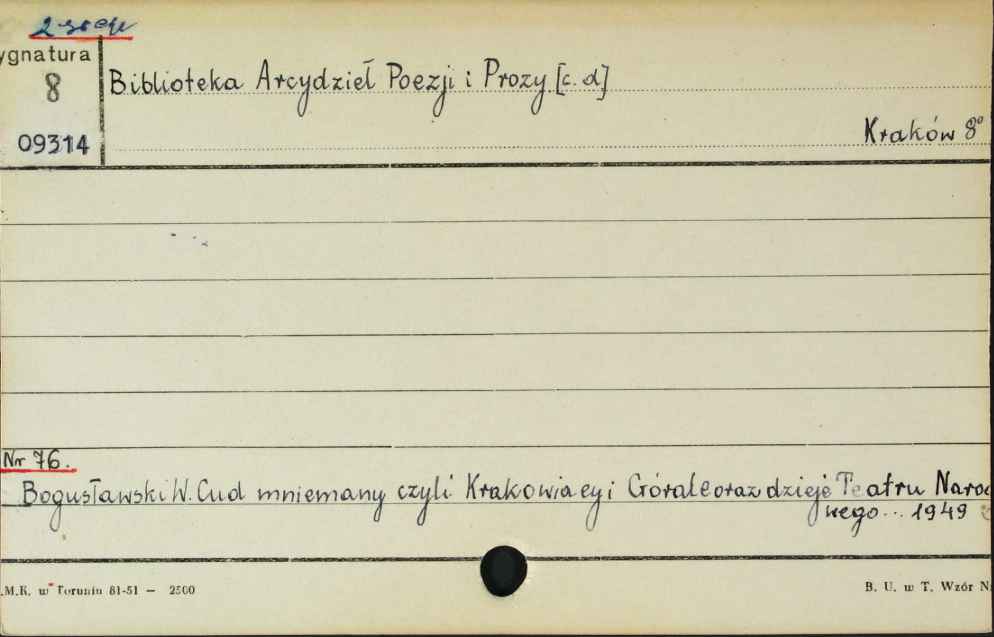 2 egz
ygnatura
8
09314
Biblioteka Arcydzieł Poezji i Prozy [c. d]
Kraków 8°
Nr 76.
Bogusławski W. Cud mniemany czyli Krakowiacy i Górale oraz dzieje Teatru Naro
wego... 1949
.M.K. w Toruniu 81-51 — 2500
B. U. w T. Wzór N